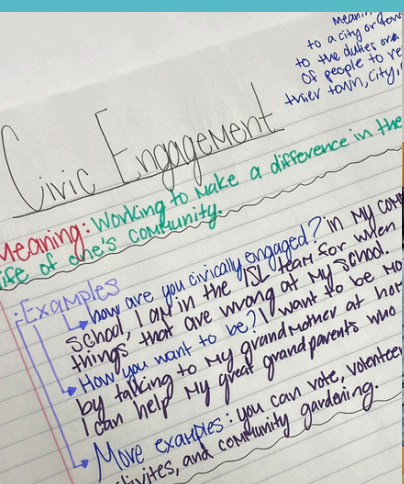 Meanin
to a city or tow
to the duties or a
of people to re
thier town, city,
Civic Engagement
Meaning: Working to make a difference in the
ife of one's community.
Examples
how are you civically engaged? in my com
school, I am in the ISL team for when
things that are wrong at my school.
How you want to be? I want to be mo
by talking to my grandmother at hom
I can help my great grandparents who
More examples: you can vote, volunteer
activites, and community gardening.